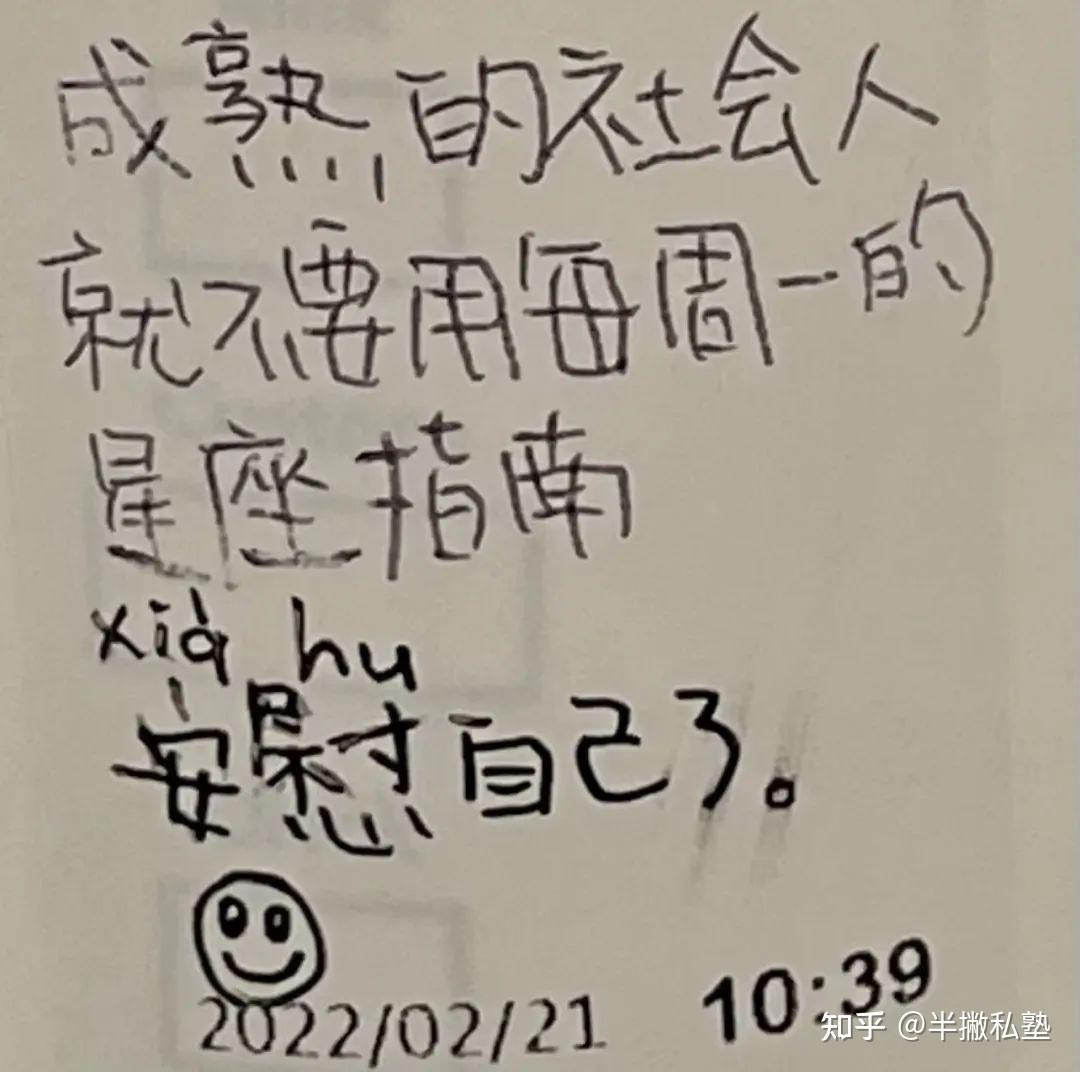 成熟的社会人
就不要用每周一的
星座指南
xià hu
安慰自己了。
2022/02/21 10:39
知乎 @半撇私塾